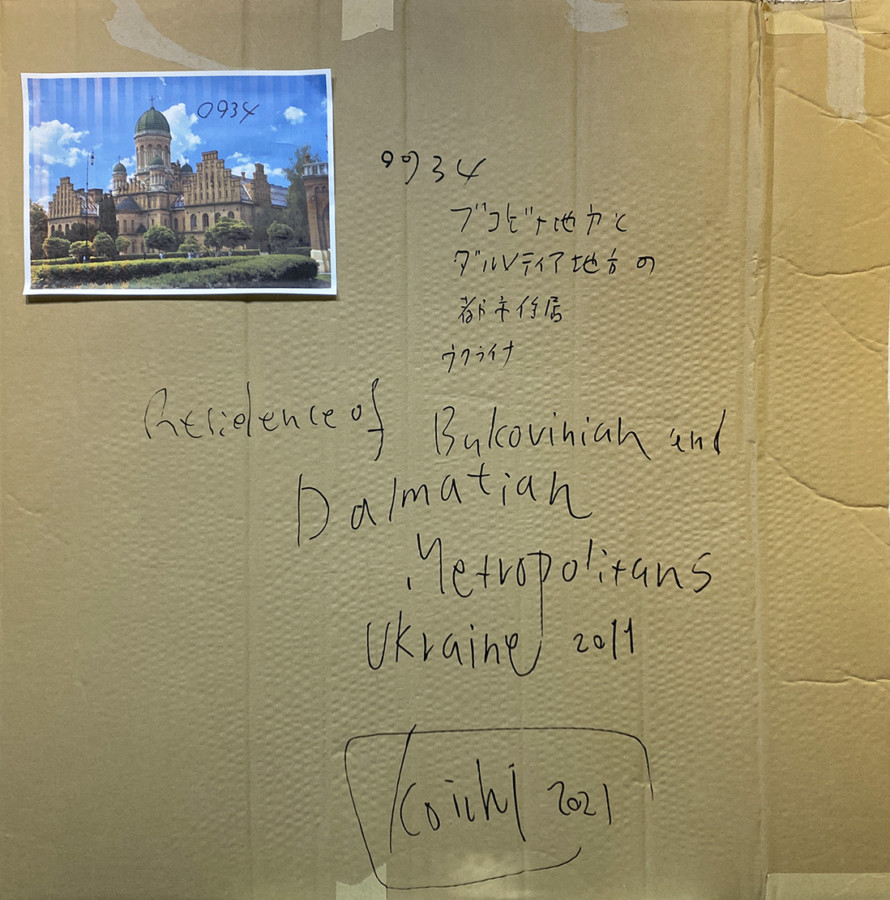 0934
0934
ブコビナ地方と
ダルマティア地方の
都市住居
ウクライナ
Residence of Bukovinian and
Dalmatian
Metropolitans
Ukraine 2011
Koichi 2021